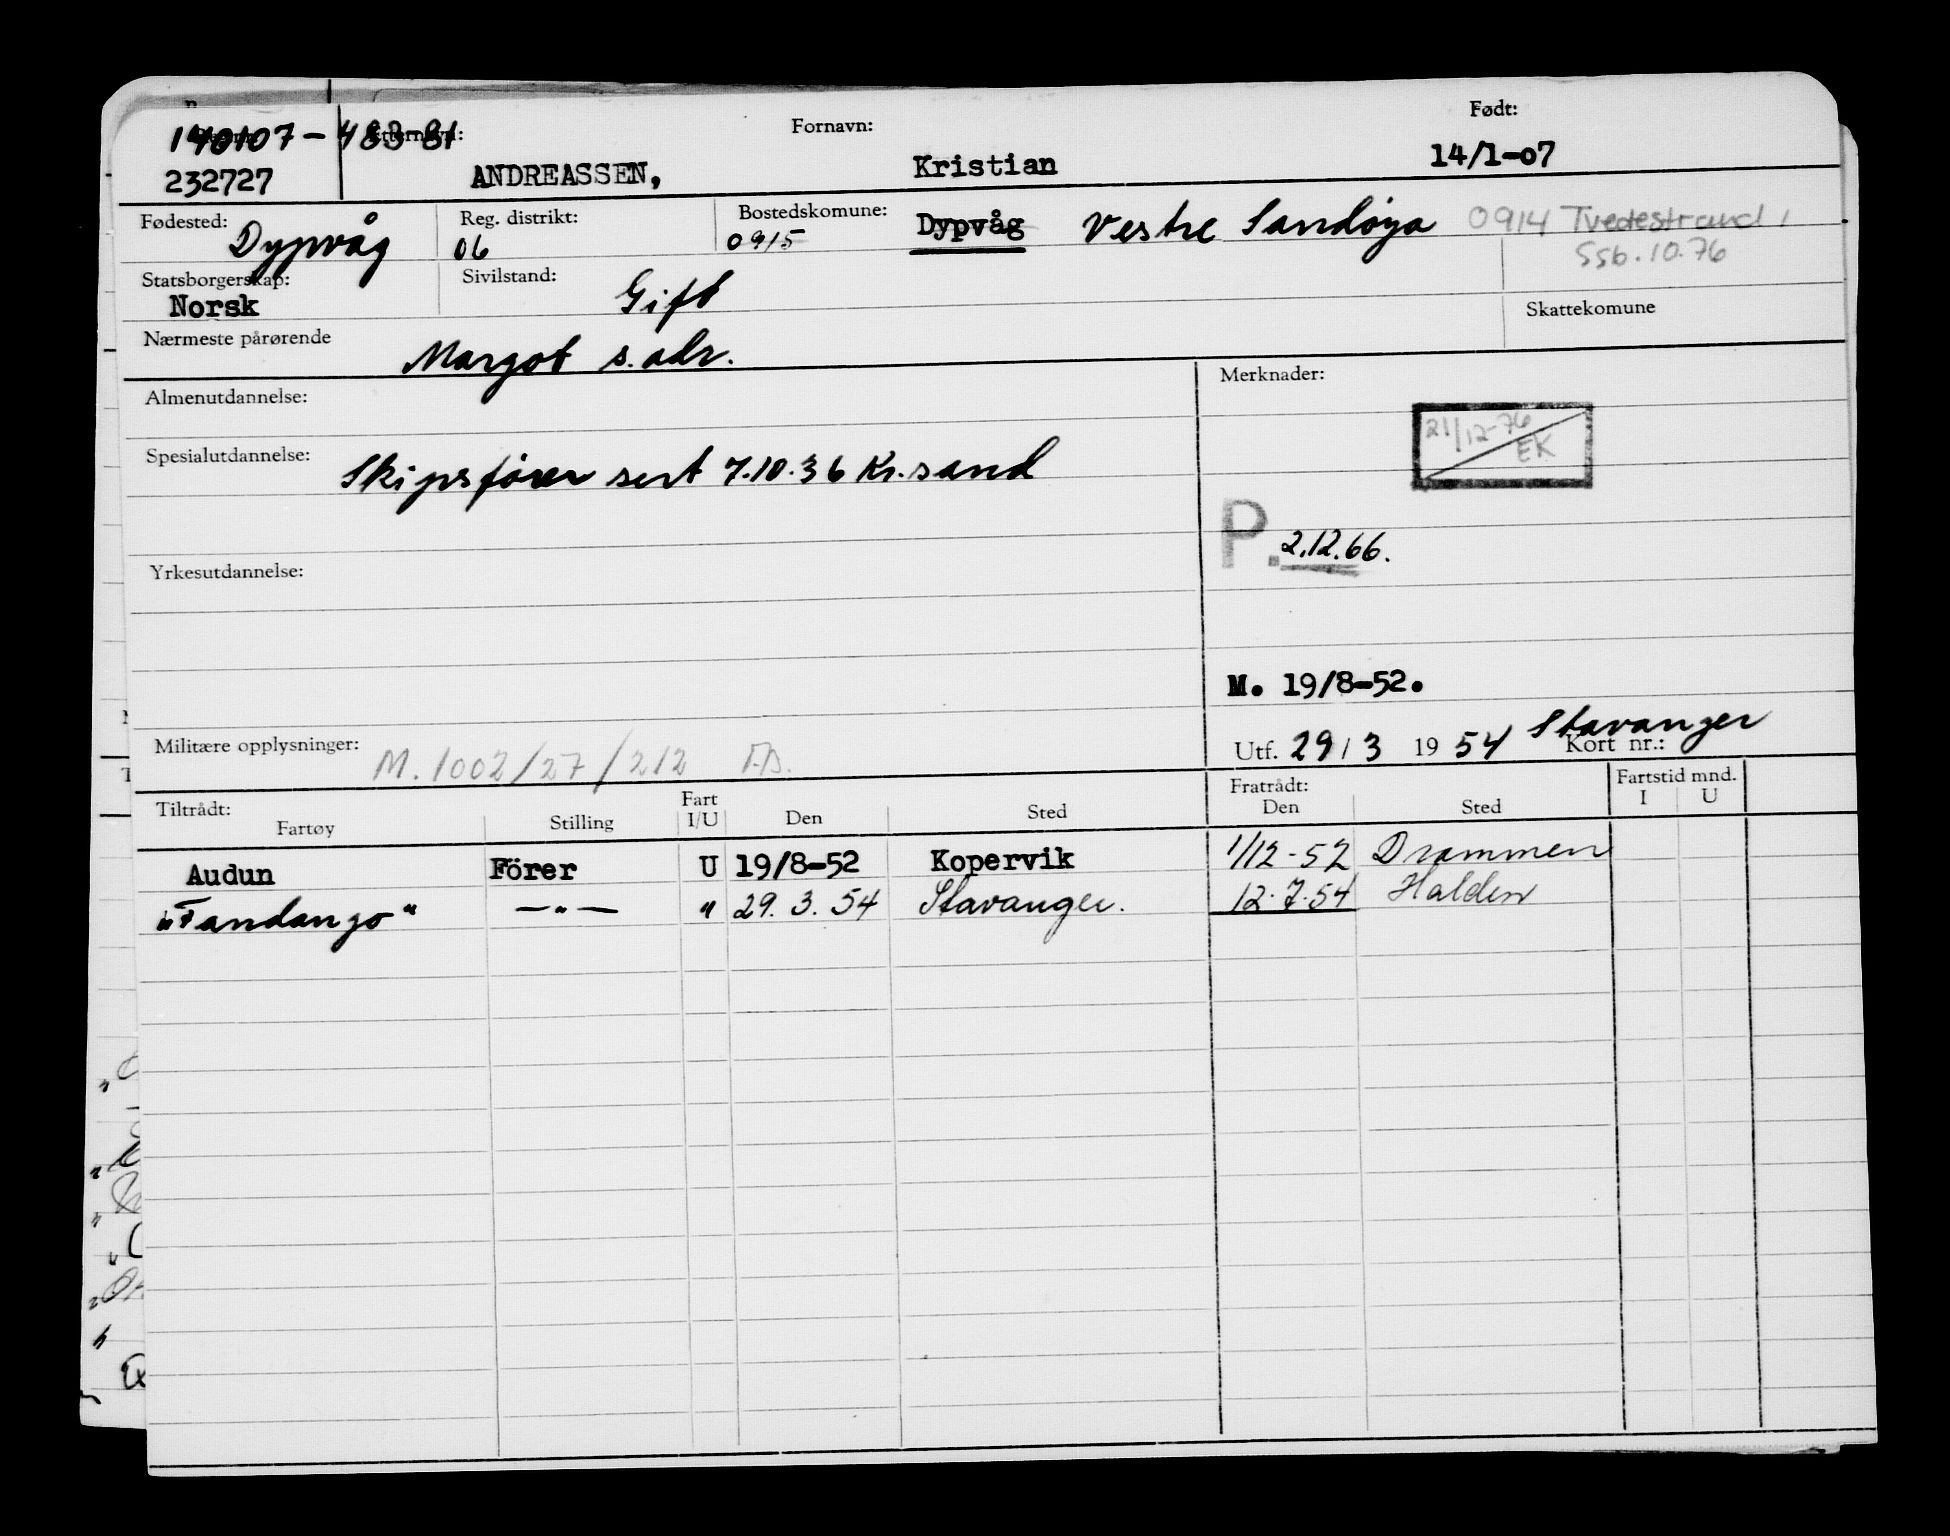 140107-483-81 Etternavn: Fornavn: Født:
232727 ANDREASSEN, Kristian 14/1-07
Fødested: Dypvåg Reg. distrikt: 06 Bostedskomune: 0915 Dypvåg Vestre Sandøya 0914 Tvedestrand
Ssb.10.76
Statsborgerskap: Norsk Sivilstand: Gift
Skattekomune
Nærmeste pårørende Margot s. adr.
Almenutdannelse: Merknader:
21/12-76 EK
Spesialutdannelse: Skipsfører sert 7.10.36 Kr.sand
P. 2.12.66.
Yrkesutdannelse:
M. 19/8-52.
Militære opplysninger: M.1002/27/212
Utf. 29/3 1954 Stavanger Kort nr.:
Tiltrådt: Fratrådt: Fartstid mnd.
Fartøy Stilling Fart I/U Den Sted Den Sted I U
Audun Förer U 19/8-52 Kopervik 1/12-52 Drammen
"Fandango" —"— " 29.3.54 Stavanger. 12.7.54 Halden